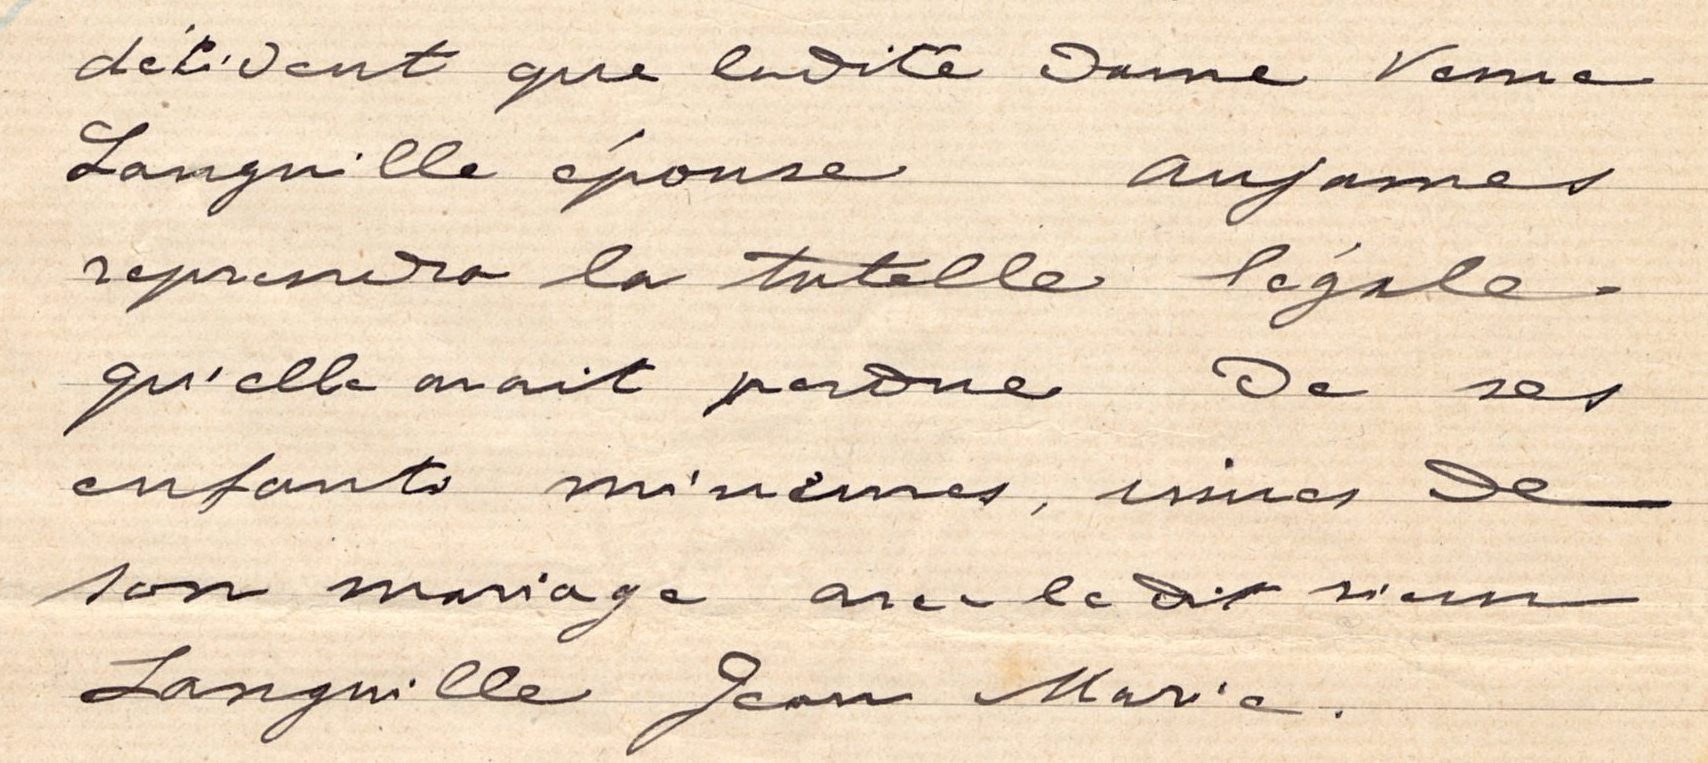 décident que ladite Dame Veuve
Languille épouse Aujames
reprendra la tutelle légale
qu'elle avait perdue de ses
enfants mineures, issues de
son mariage avec ledit sieur
Languille Jean Marie.